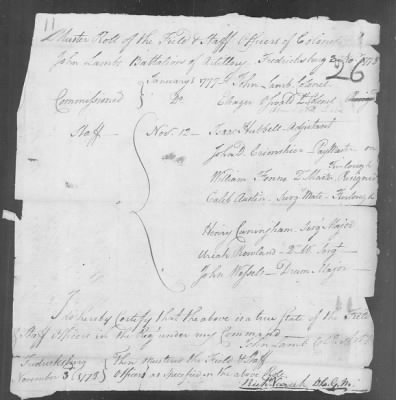 11
Muster Roll of the Field & Staff Officers of Colonel
John Lambs Battalion of Artillery Fredericksburg 1778
26
January 1 1777 John Lamb Colonel
Commissioned Do Ebazer Oswald Lt Colonel
Staff Nov. 12 Isaac Hubbell Adjutant
John D. Crimshier PayMaster on Furlough
William Fenno Resigned
Caleb Austin Surgn Mate Furlough
Henry Cuningham Sergt Major
Uriah Rowland Q M Sergt
John Wessels Drum Major
I do hereby Certify that the above is a true State of the Field
Staff Officers in the Regt under my Command
John Lamb Col
Fredricksburg Then Mustered the Field & Staff
November 3d 1778 Officers as specified in the above Roll
D.C.G.M.